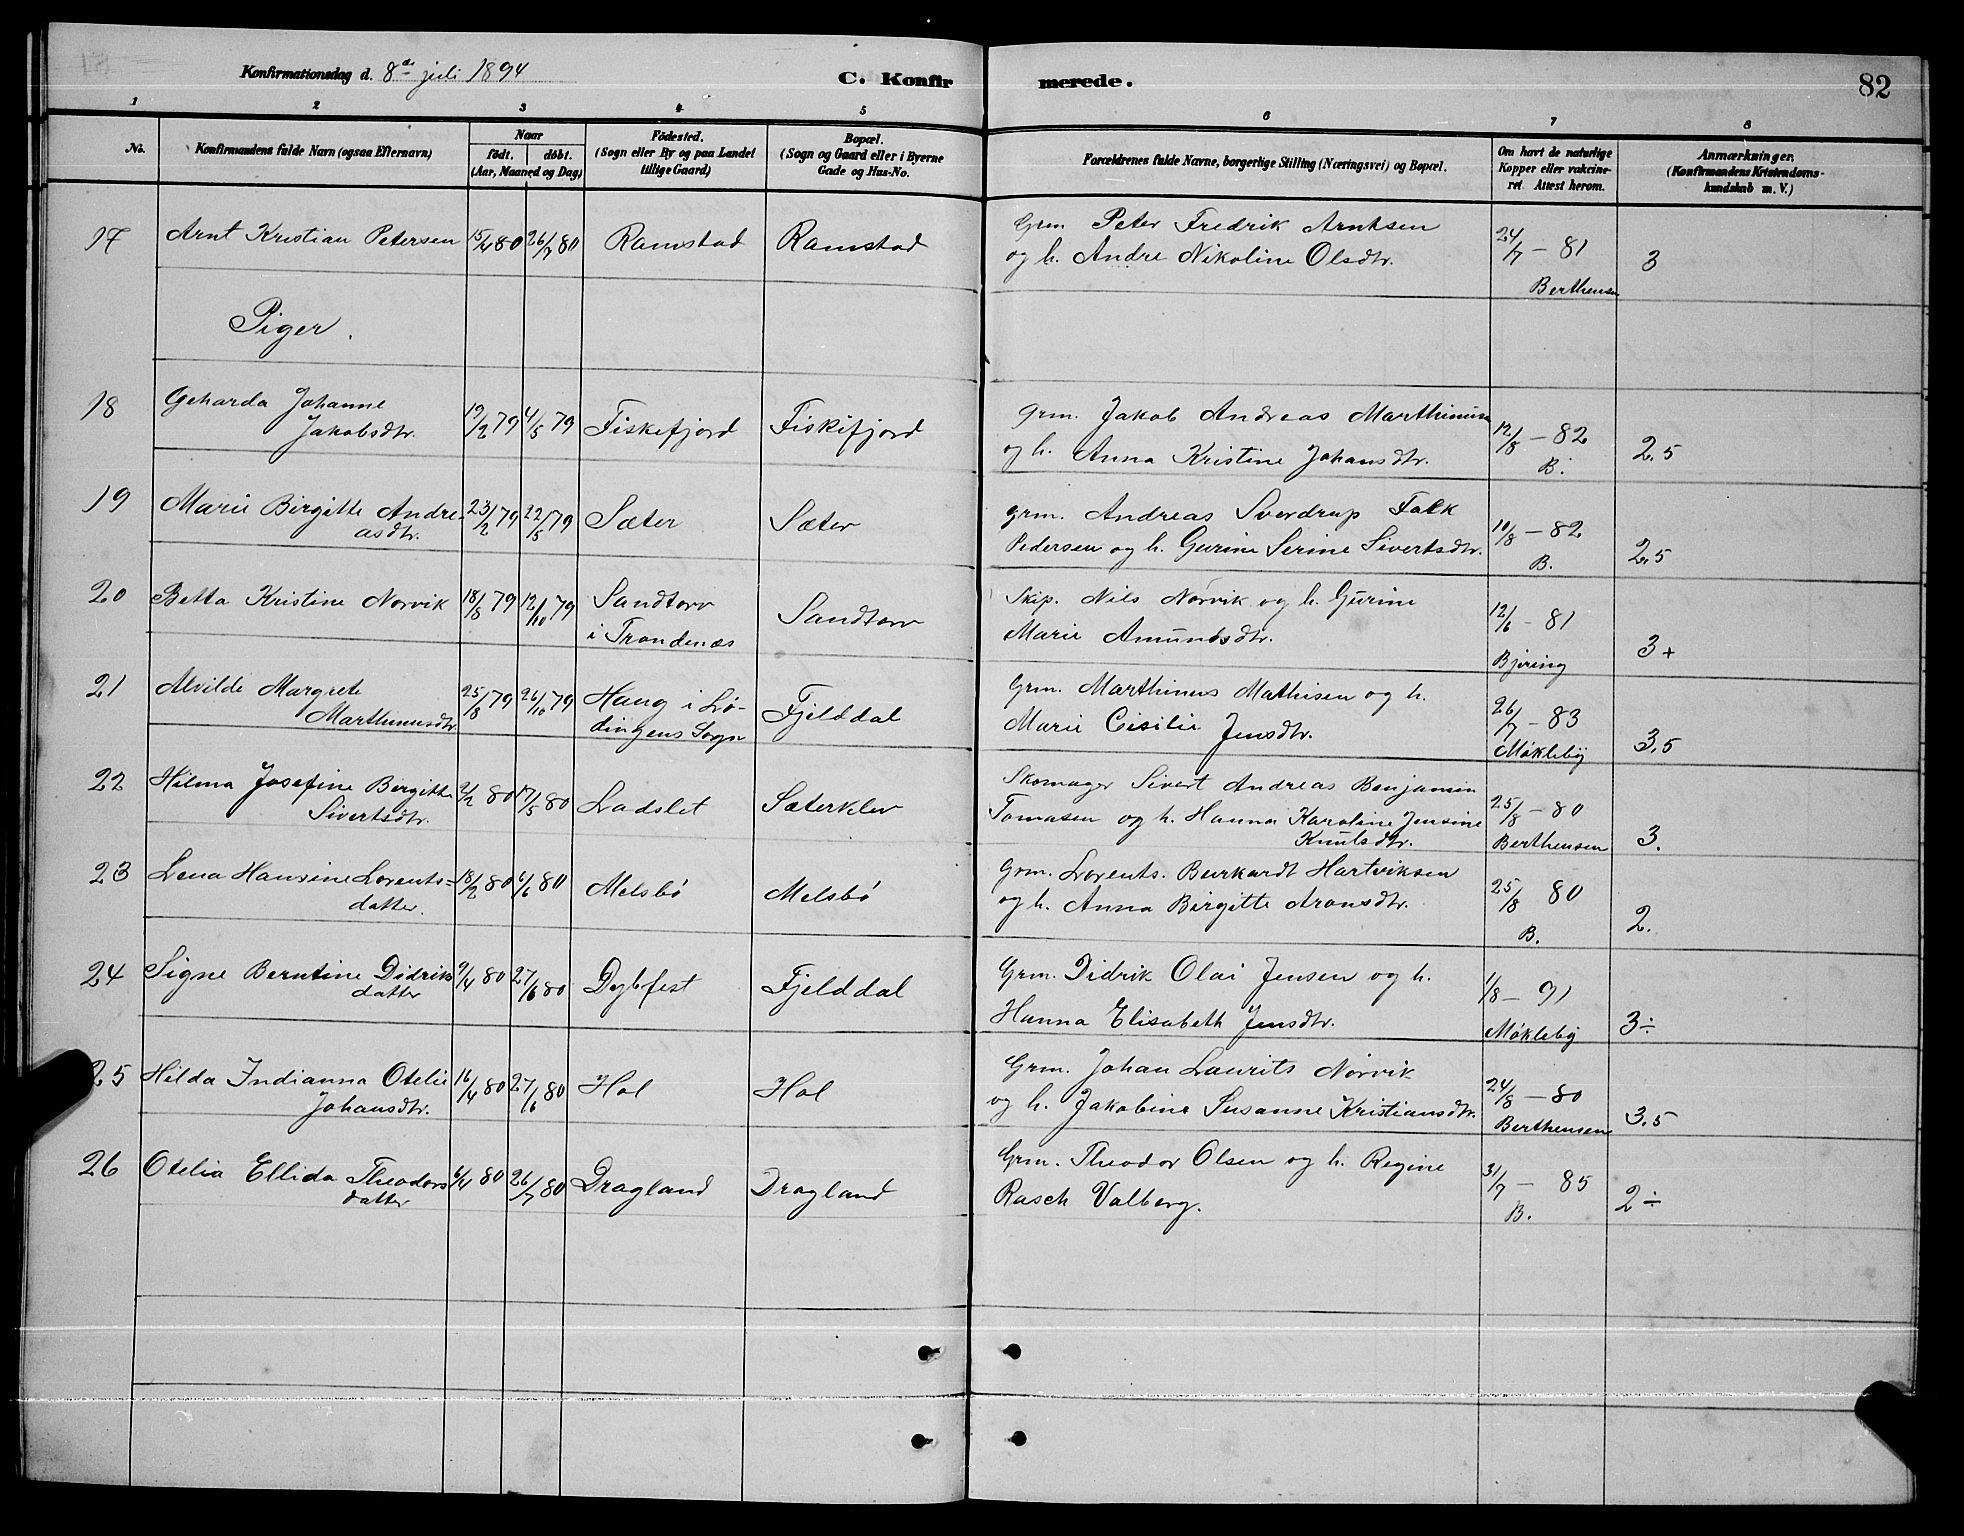 Konfirmationsdag d. 8de juli 1894
C. Konfirmerede.
82
1 2 3 4 5 6 7 8
No.
Konfirmandens fulde Navn (ogsaa Efternavn)
Naar
født. døbt.
(Aar, Maaned og Dag)
Fødested.
(Sogn eller By og paa Landet
tillige Gaard)
Bopæl.
(Sogn og Gaard eller i Byerne
Gade og Hus-No.
Forældrenes fulde Navne, borgerlige Stilling (Næringsvei) og Bopæl.
Om havt de naturlige
Kopper eller vakcine-
ret. Attest herom.
Anmærkninger.
(Konfirmandens Kristendoms-
kundskab m. V.)
17 Arnt Kristian Petersen 15/4 80 26/7 80 Ramstad Ramstad
Grm Peter Fredrik Arntsen
og h. Andre Nikoline Olsdtr.
24/7 - 81
Berthensen
3
Piger.
18 Geharda Johanne
Jakobsdtr.
19/2 79 4/5 79 Fiskefjord Fiskefjord
Grm. Jakob Andreas Marthinusen
og h. Anna Kristine Johansdtr.
12/8 - 82
B.
2,5
19 Marie Birgitte Andre-
asdtr.
23/2 79 22/5 79 Sæter Sæter
grm. Andreas Sverdrup Falk
Pedersen og h. Gurine Serine Sivertsdtr.
10/8 - 82
B.
2,5
20 Betta Kristine Norvik 18/8 79 12/10 79 Sandtorv
i Trondenæs
Sandtorv
Skip. Nils Norvik og h. Gurine
Marie Amundsdtr.
12/6 - 81
Bjering
3+
21 Alvilde Margrete
Marthinusdtr
25/8 79 26/10 79 Haug i Lø-
dingens Sogn
Fjelddal
Grm. Marthinus Mathisen og h.
Marie Cisilie Jensdtr.
26/7 - 83
Mökleby
3,5
22 Hilma Josefine Birgitte
Sivertsdtr.
2/2 80 17/5 80 Ladslet Sæterklev
Skomager Sivert Andreas Benjamin
Tomasen og h. Hanna Karoline Jensine
Knutsdtr.
25/8 - 80
Berthensen
3.
23 Lena Hansine Lorents=
datter.
18/2 80 6/6 80 Melsbø Melsbø
Grm. Lorents. Burkardt Hartviksen
og h. Anna Birgitte Aronsdtr.
25/8 80
B.
2.
24 Signe Berntine Didriks
datter
9/4 80 27/6 80 Dybfest Fjelddal
Grm. Didrik Olai Jensen og h.
Hanna Elisabeth Jensdtr.
1/8 - 91
Mökleby
3÷
25 Hilda Indianna Otelie
Johansdtr.
16/4 80 27/6 80 Hol Hol
Grm. Johan Laurits Norvik
og h. Jakobine Susanne Kristiansdtr.
24/8 - 80
Berthensen
3,5
26 Otelia Ellida Theodors
datter
6/4 80 26/7 80 Dragland Dragland
Grm. Theodor Olsen og h. Regine
Rasch Valberg.
31/7 - 85
B.
2÷